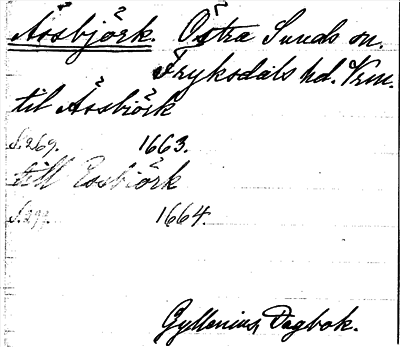 Åssbjörk. Östra Sunds sn.
Fryksdals hd. Vrm.
til Åssbiörk
S. 269. 1663.
till Essbiörk
1664.
Gyllenius Dagbok.